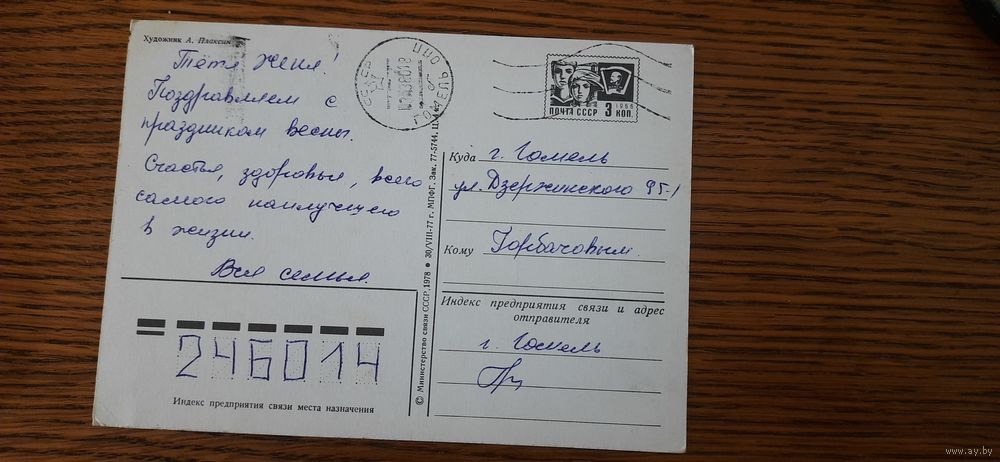 Художник А. Плаксин
Тётя Женя!
Поздравляем с
праздником весны.
Счастья, здоровья, всего
самого наилучшего
в жизни.
Вся семья.
246014
Индекс предприятия связи места назначения
© Министерство связи СССР, 1978 ● 30/VIII-77 г. МПФГ. Зак. 77-5744. Ц. 4 к.
ПОЧТА СССР 3 КОП.
1966
Куда г. Гомель
ул. Дзержинского
Кому Горбачовым.
Индекс предприятия связи и адрес
отправителя
г. Гомель
www.ay.by